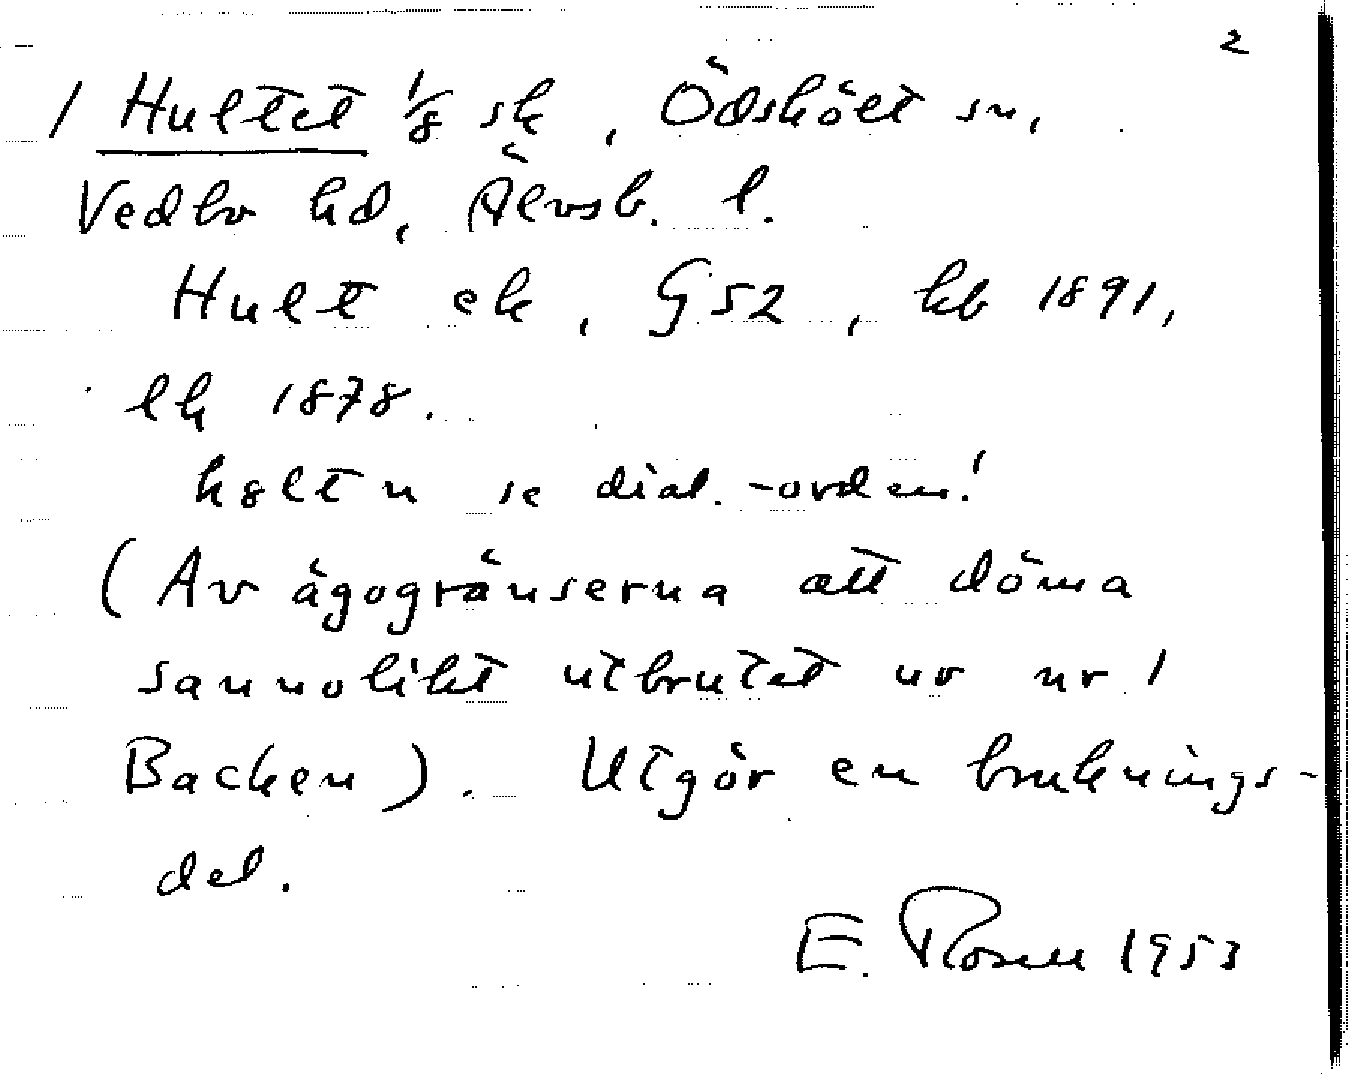 2
1 Hultet 1/8 sk, Ödskölt sn,
Vedbo hd, Älvsb. l.
Hult ek, G52, kb 1891,
lk 1878.
hølt n se dial.-orden!
(Av ägogränserna att döma
sannolikt utbrutet ur nr 1
Backen). Utgör en bruknings-
del.
E. Rosell 1953